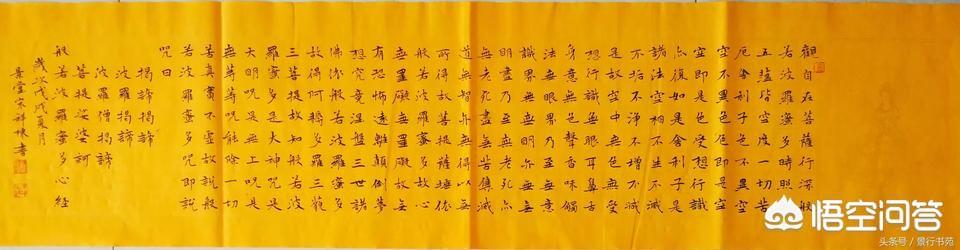 觀自在菩薩行深般
若波羅蜜多時照見
五蘊皆空度一切苦
厄舍利子色不異空
空不異色色即是空
空即是色受想行識
亦復如是舍利子是
諸法空相不生不滅
不垢不淨不增不減
是故空中無色無受
想行識無眼耳鼻舌
身意無色聲香味觸
法無眼界乃至無意
識界無無明亦無無
明盡乃至無老死亦
無老死盡無苦集滅
道無智亦無得以無
所得故菩提薩埵依
般若波羅蜜多故心
無罣礙無罣礙故無
有恐怖遠離顛倒夢
想究竟涅槃三世諸
佛依般若波羅蜜多
故得阿耨多羅三藐
三菩提故知般若波
羅蜜多是大神咒是
大明咒是無上咒是
無等等咒能除一切
苦真實不虛故說般
若波羅蜜多咒即說
咒曰
揭諦揭諦
波羅揭諦
波羅僧揭諦
菩提娑婆訶
般若波羅蜜多心經
歲次戊戌夏月
景堂宋祥棟書
悟空问答
头条号／景行书苑